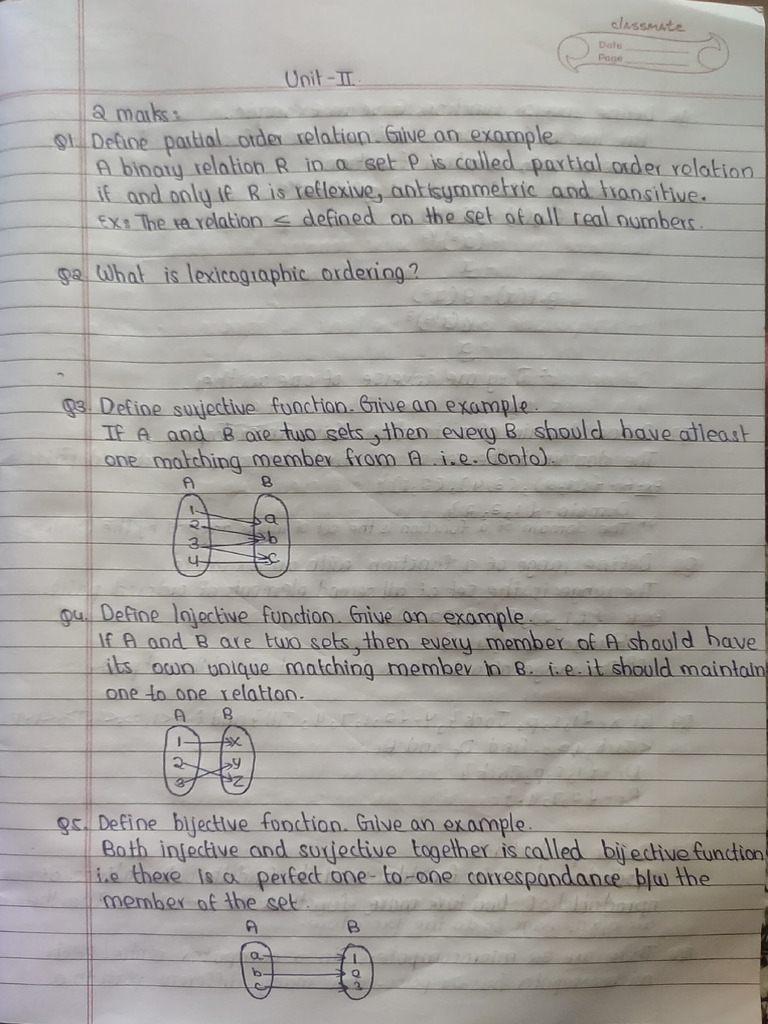 classmate
Date
Page
Unit-II.
2 marks:
Q1. Define partial order relation. Give an example.
A binary relation R in a set P is called partial order relation
if and only if R is reflexive, antisymmetric and transitive.
Ex: The relation ≤ defined on the set of all real numbers.
Q2. What is lexicographic ordering?
Q3. Define surjective function. Give an example.
If A and B are two sets, then every B should have atleast
one matching member from A i.e. (onto).
A B
1 a
2 b
3 c
4
Q4. Define Injective function. Give an example.
If A and B are two sets, then every member of A should have
its own unique matching member in B. i.e. it should maintain
one to one relation.
A B
1 x
2 y
3 z
Q5. Define bijective function. Give an example.
Both injective and surjective together is called bijective function
i.e there is a perfect one-to-one correspondance b/w the
member of the set.
A B
a 1
b 2
c 3